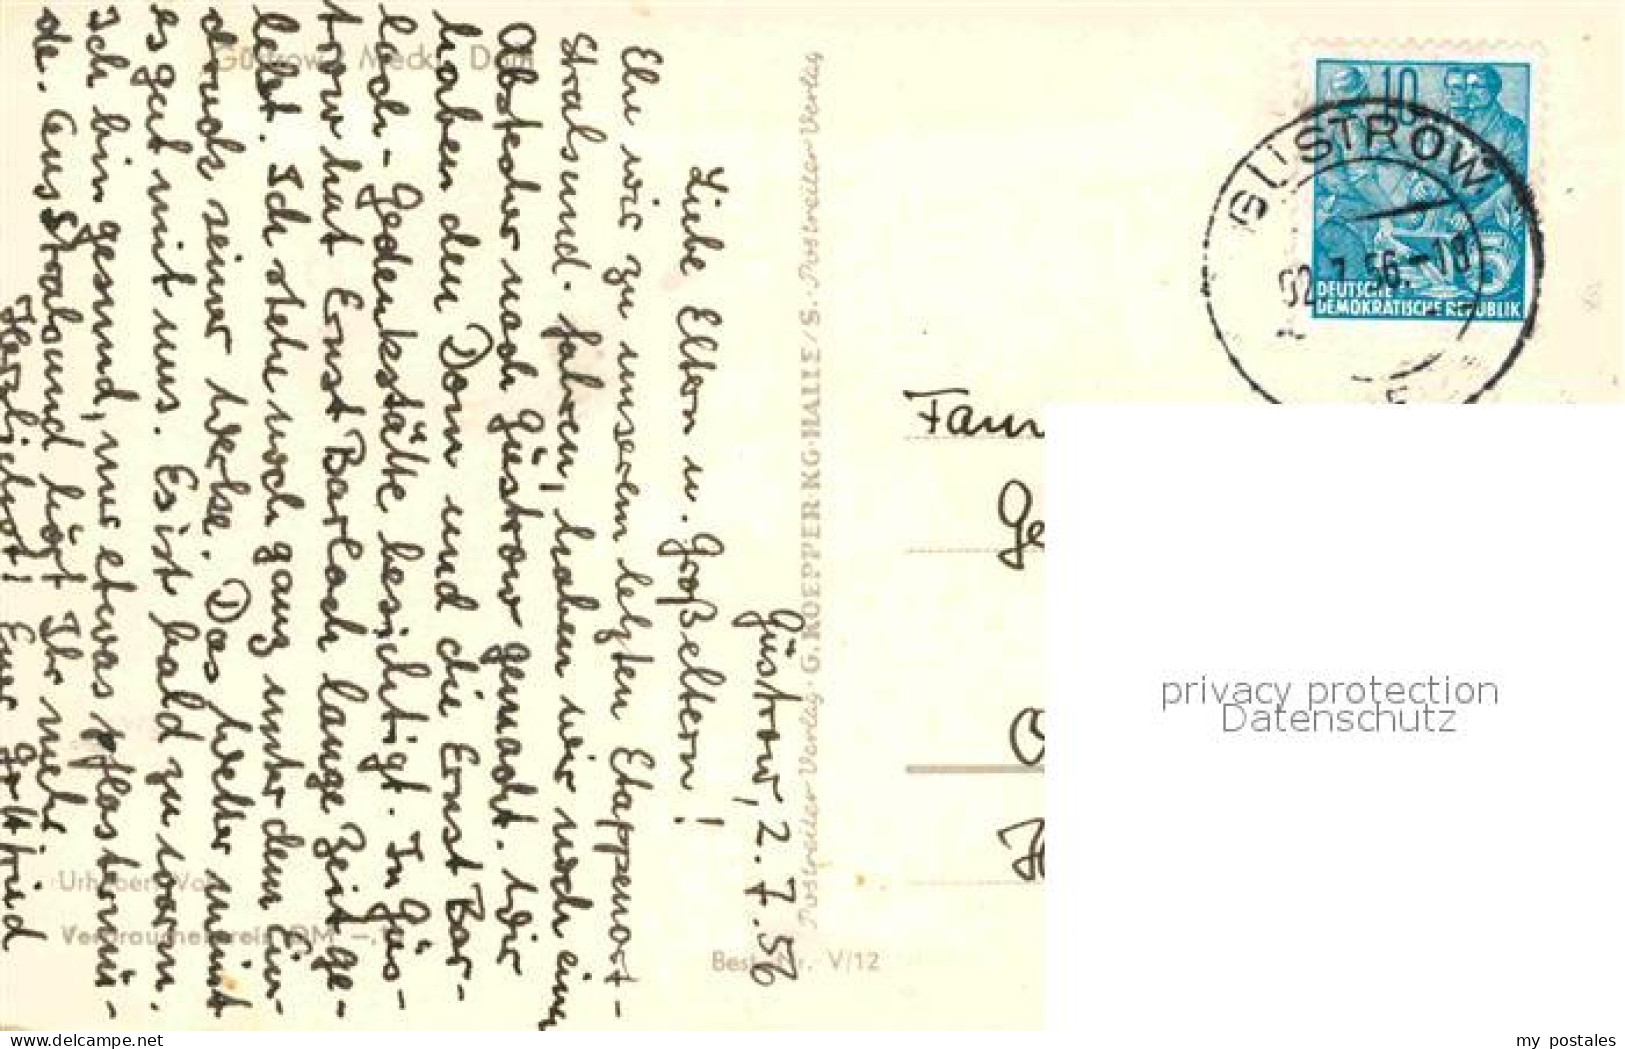 Güstrow, 2. 7. 56
Liebe Eltern u. Großeltern!
Ehe wir zu unserem letzten Etappenort-
Stralsund. fahren, haben wir noch einen
Abstecher nach Güstrow gemacht. Wir
haben den Dom und die Ernst Bar-
lach-Gedenkstätte besichtigt. In Güs-
trow hat Ernst Barlach lange Zeit ge-
lebt. Ich stehe noch ganz unter dem Ein-
druck seiner Werke. Das Wetter meint
es gut mit uns. Es ist bald zu warm.
Ich bin gesund, nur etwas pflastermü-
de. Aus Stralsund hört Ihr mehr
Herzlichst! Euer Gottfried
Güstrow Meckl. Dom
Urheber: Vol
Verbraucherpreis DM -,
Best.-Nr. V/12
Postreiter Verlag · G. KOEPPER · KG · HALLE / S. · Postreiter Verlag
10
5
DEUTSCHE
DEMOKRATISCHE REPUBLIK
GÜSTROW
02.7.56.-18
Fam
Ge
privacy protection
Datenschutz
www.delcampe.net
my_postales